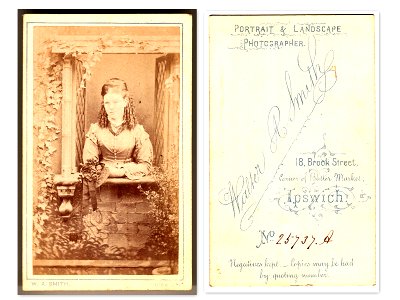 W. R. SMITH
PORTRAIT & LANDSCAPE
PHOTOGRAPHER.
Windsor R Smith
18, Brook Street,
Corner of Butter Market,
Ipswich
No 25737.A
Negatives kept — Copies may be had
by quoting number.